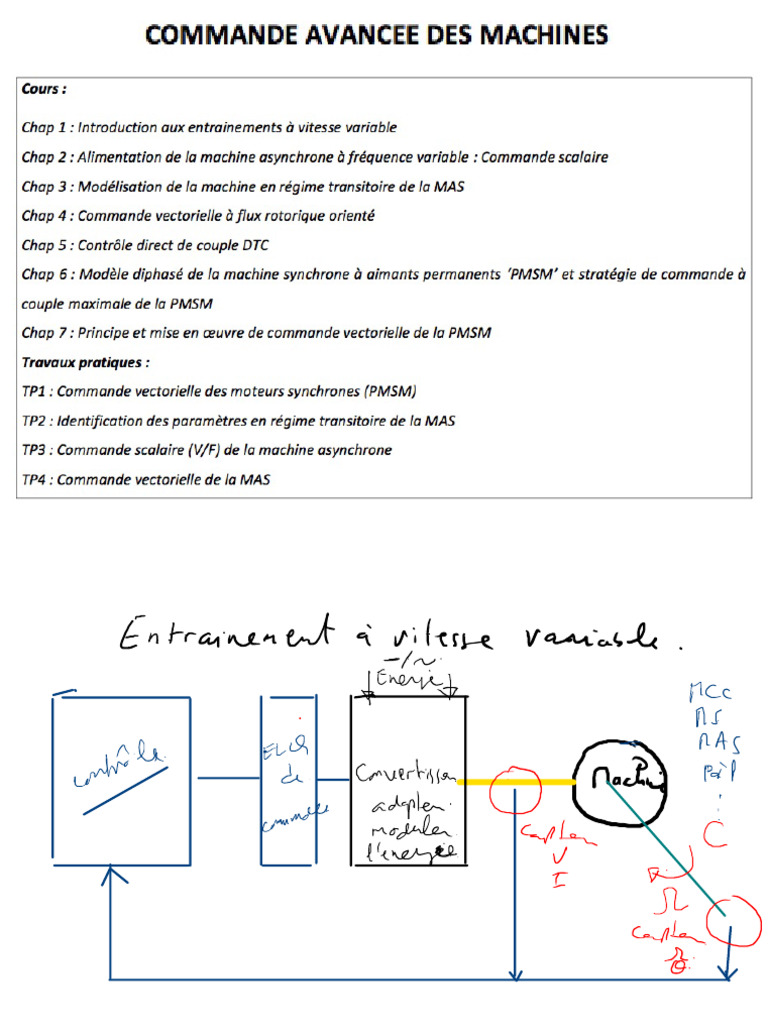 COMMANDE AVANCEE DES MACHINES
Cours :
Chap 1 : Introduction aux entrainements à vitesse variable
Chap 2 : Alimentation de la machine asynchrone à fréquence variable : Commande scalaire
Chap 3 : Modélisation de la machine en régime transitoire de la MAS
Chap 4 : Commande vectorielle à flux rotorique orienté
Chap 5 : Contrôle direct de couple DTC
Chap 6 : Modèle diphasé de la machine synchrone à aimants permanents ‘PMSM’ et stratégie de commande à
couple maximale de la PMSM
Chap 7 : Principe et mise en œuvre de commande vectorielle de la PMSM
Travaux pratiques :
TP1 : Commande vectorielle des moteurs synchrones (PMSM)
TP2 : Identification des paramètres en régime transitoire de la MAS
TP3 : Commande scalaire (V/F) de la machine asynchrone
TP4 : Commande vectorielle de la MAS
Entrainement à vitesse variable.
-/~
Energie
contrôle
de
commande
Convertisseur
adapter
moduler
l'énergie
Machine
MCC
MS
MAS
pàp
C
Capteur
V
I
Ω
Capteur
Ω
θ